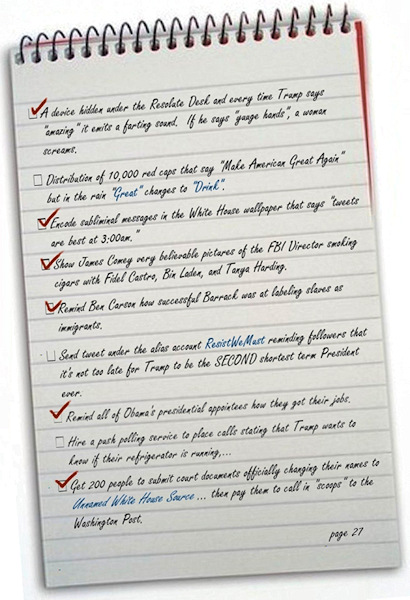 A device hidden under the Resolute Desk and every time Trump says
"amazing" it emits a farting sound. If he says "yuuge hands", a woman
screams.
Distribution of 10,000 red caps that say "Make American Great Again"
but in the rain "Great" changes to "Drink".
Encode subliminal messages in the White House wallpaper that says "tweets
are best at 3:00am."
Show James Comey very believable pictures of the FBI Director smoking
cigars with Fidel Castro, Bin Laden, and Tanya Harding.
Remind Ben Carson how successful Barrack was at labeling slaves as
immigrants.
Send tweet under the alias account ResistWeMust reminding followers that
it's not too late for Trump to be the SECOND shortest term President
ever.
Remind all of Obama's presidential appointees how they got their jobs.
Hire a push polling service to place calls stating that Trump wants to
know if their refrigerator is running,...
Get 200 people to submit court documents officially changing their names to
Unnamed White House Source ... then pay them to call in "scoops" to the
Washington Post.
page 27